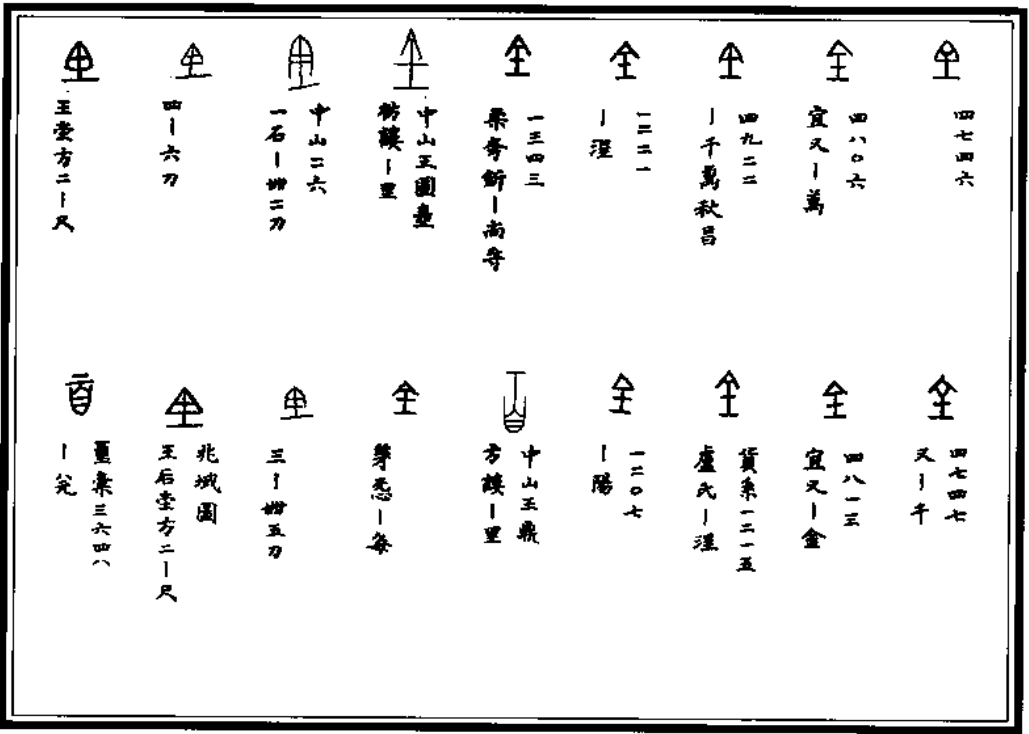 四七四六
四八〇六
宜又丨萬
四九二二
丨千萬秋昌
一二二一
丨涅
一三四三
梁夸釿丨尚寽
中山王圓壺
丨里
中山二六
一石丨卌二刀
四丨六刀
王堂方二丨尺
四七四七
又丨千
四八一三
宜又丨金
貨系一二一五
盧氏丨涅
一二〇七
丨陽
中山王鼎
方丨里
丨每
三丨卌五刀
兆域圖
王后堂方二丨尺
璽彙三六四八
丨